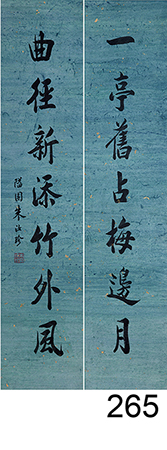 一亭舊占梅邊月
曲徑新添竹外風
隘園朱汝珍
265